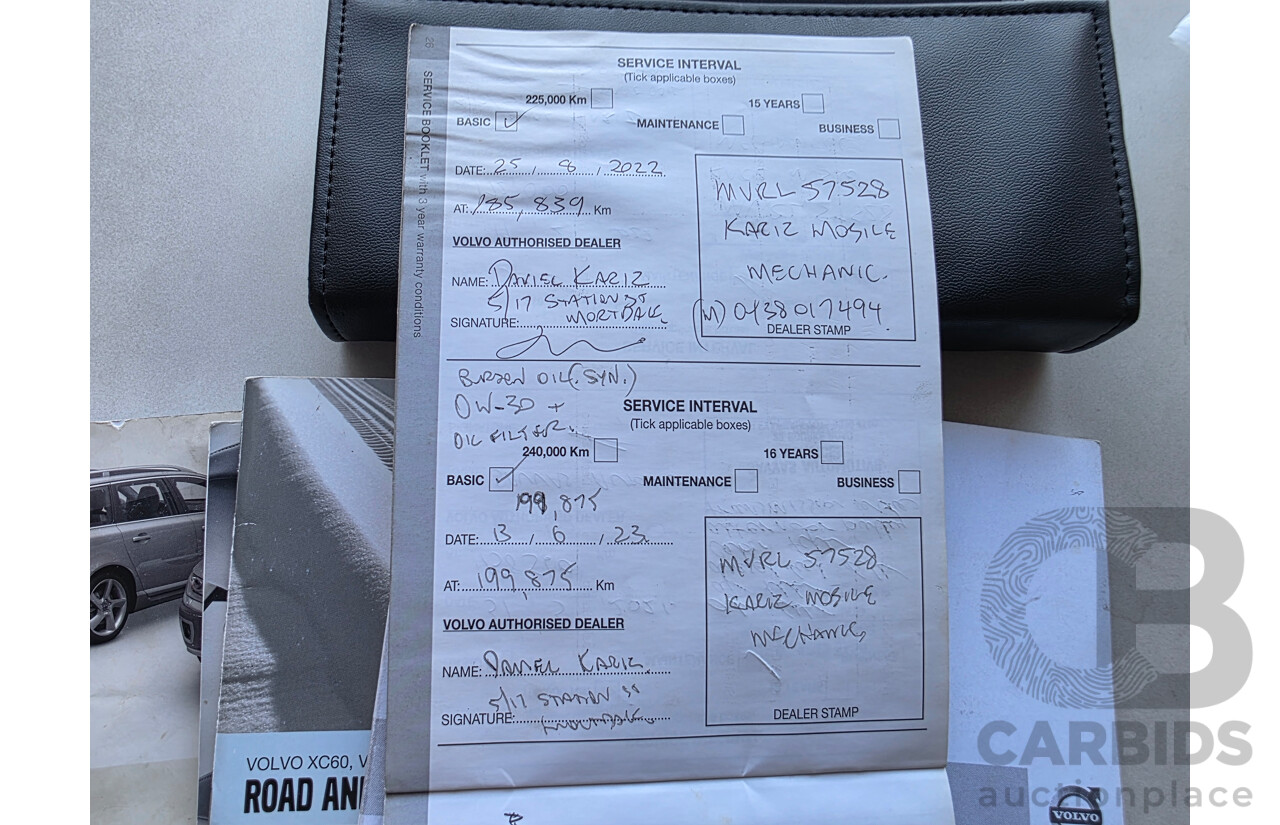 26
SERVICE BOOKLET with 3 year warranty conditions
SERVICE INTERVAL
(Tick applicable boxes)
225,000 Km
15 YEARS
BASIC
MAINTENANCE
BUSINESS
DATE: 25 / 8 / 2022
AT: 185,839 Km
VOLVO AUTHORISED DEALER
NAME: DANIEL KARIZ
5/17 STATION ST
MORTDALE
SIGNATURE:
MVRL 57528
KARIZ MOBILE
MECHANIC.
(M) 0438 017494.
DEALER STAMP
OIL (SYN.)
0W-30 +
OIL FILTER.
SERVICE INTERVAL
(Tick applicable boxes)
240,000 Km
16 YEARS
BASIC
MAINTENANCE
BUSINESS
199,875
DATE: 13 / 6 / 23
AT: 199,875 Km
VOLVO AUTHORISED DEALER
NAME: DANIEL KARIZ
5/17 STATION ST
SIGNATURE:
MVRL 57528
KARIZ MOBILE
MECHANIC
DEALER STAMP
VOLVO XC60, V
ROAD AN
VOLVO
CB
CARBIDS
auctionplace